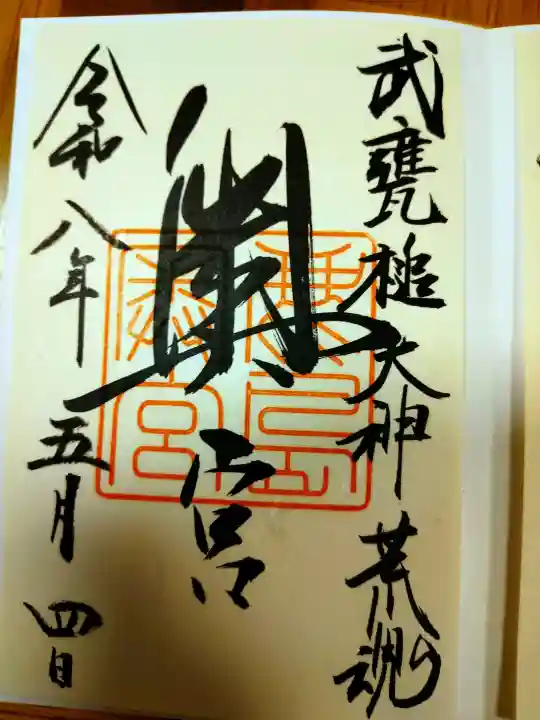 武甕槌大神荒魂
奥宮
鹿島
奥宮
令和八年五月四日